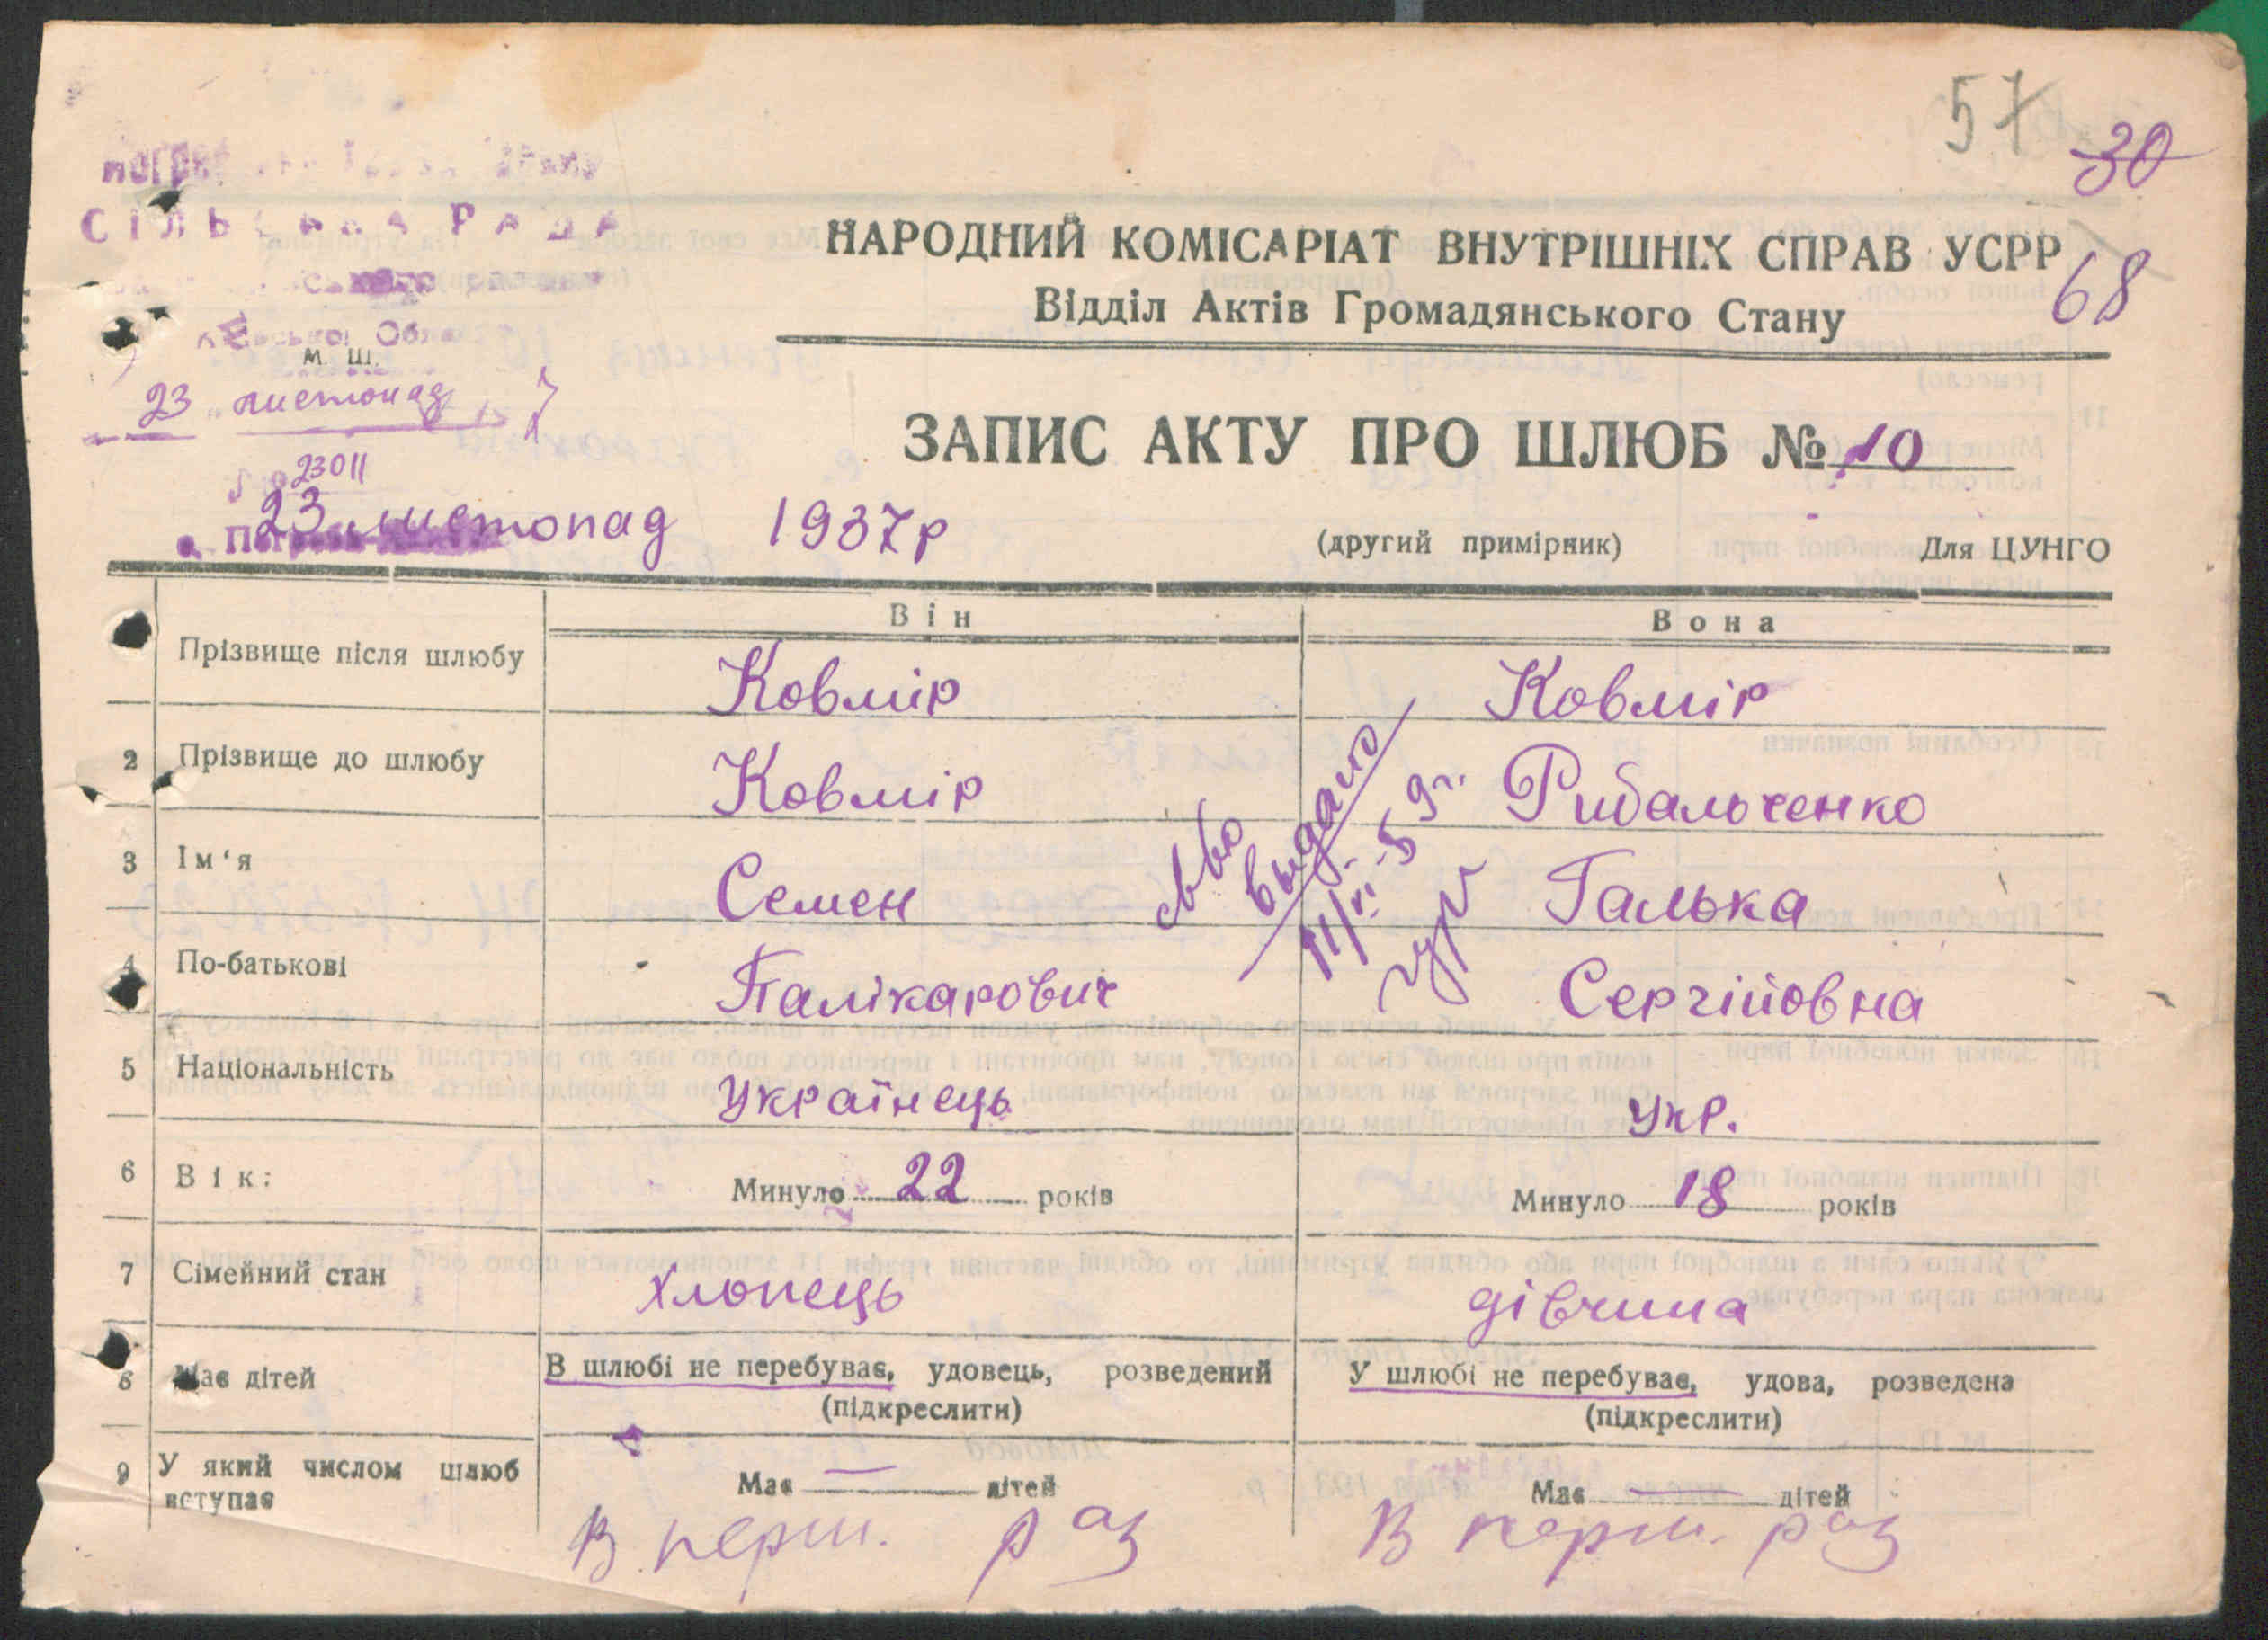 57
30
68
СІЛЬСЬКА РАДА
М. Ш.
23 листопад
23011
23 листопад 1937р
НАРОДНИЙ КОМІСАРІАТ ВНУТРІШНІХ СПРАВ УСРР
Відділ Актів Громадянського Стану
ЗАПИС АКТУ ПРО ШЛЮБ № 10
(другий примірник) Для ЦУНГО
Він Вона
Прізвище після шлюбу Ковмір Ковмір
2 Прізвище до шлюбу Ковмір Рибальченко
3 Ім‘я Семен Галька
4 По-батькові Палікарович Сергійовна
выдано
5 Національність Українець Укр.
6 Вік: Минуло 22 років Минуло 18 років
7 Сімейний стан хлопець дівчина
8 Має дітей В шлюбі не перебуває, удовець, розведений У шлюбі не перебуває, удова, розведена
(підкреслити) (підкреслити)
9 У який числом шлюб вступає Має — дітей Має — дітей
В перш. раз В перш. раз